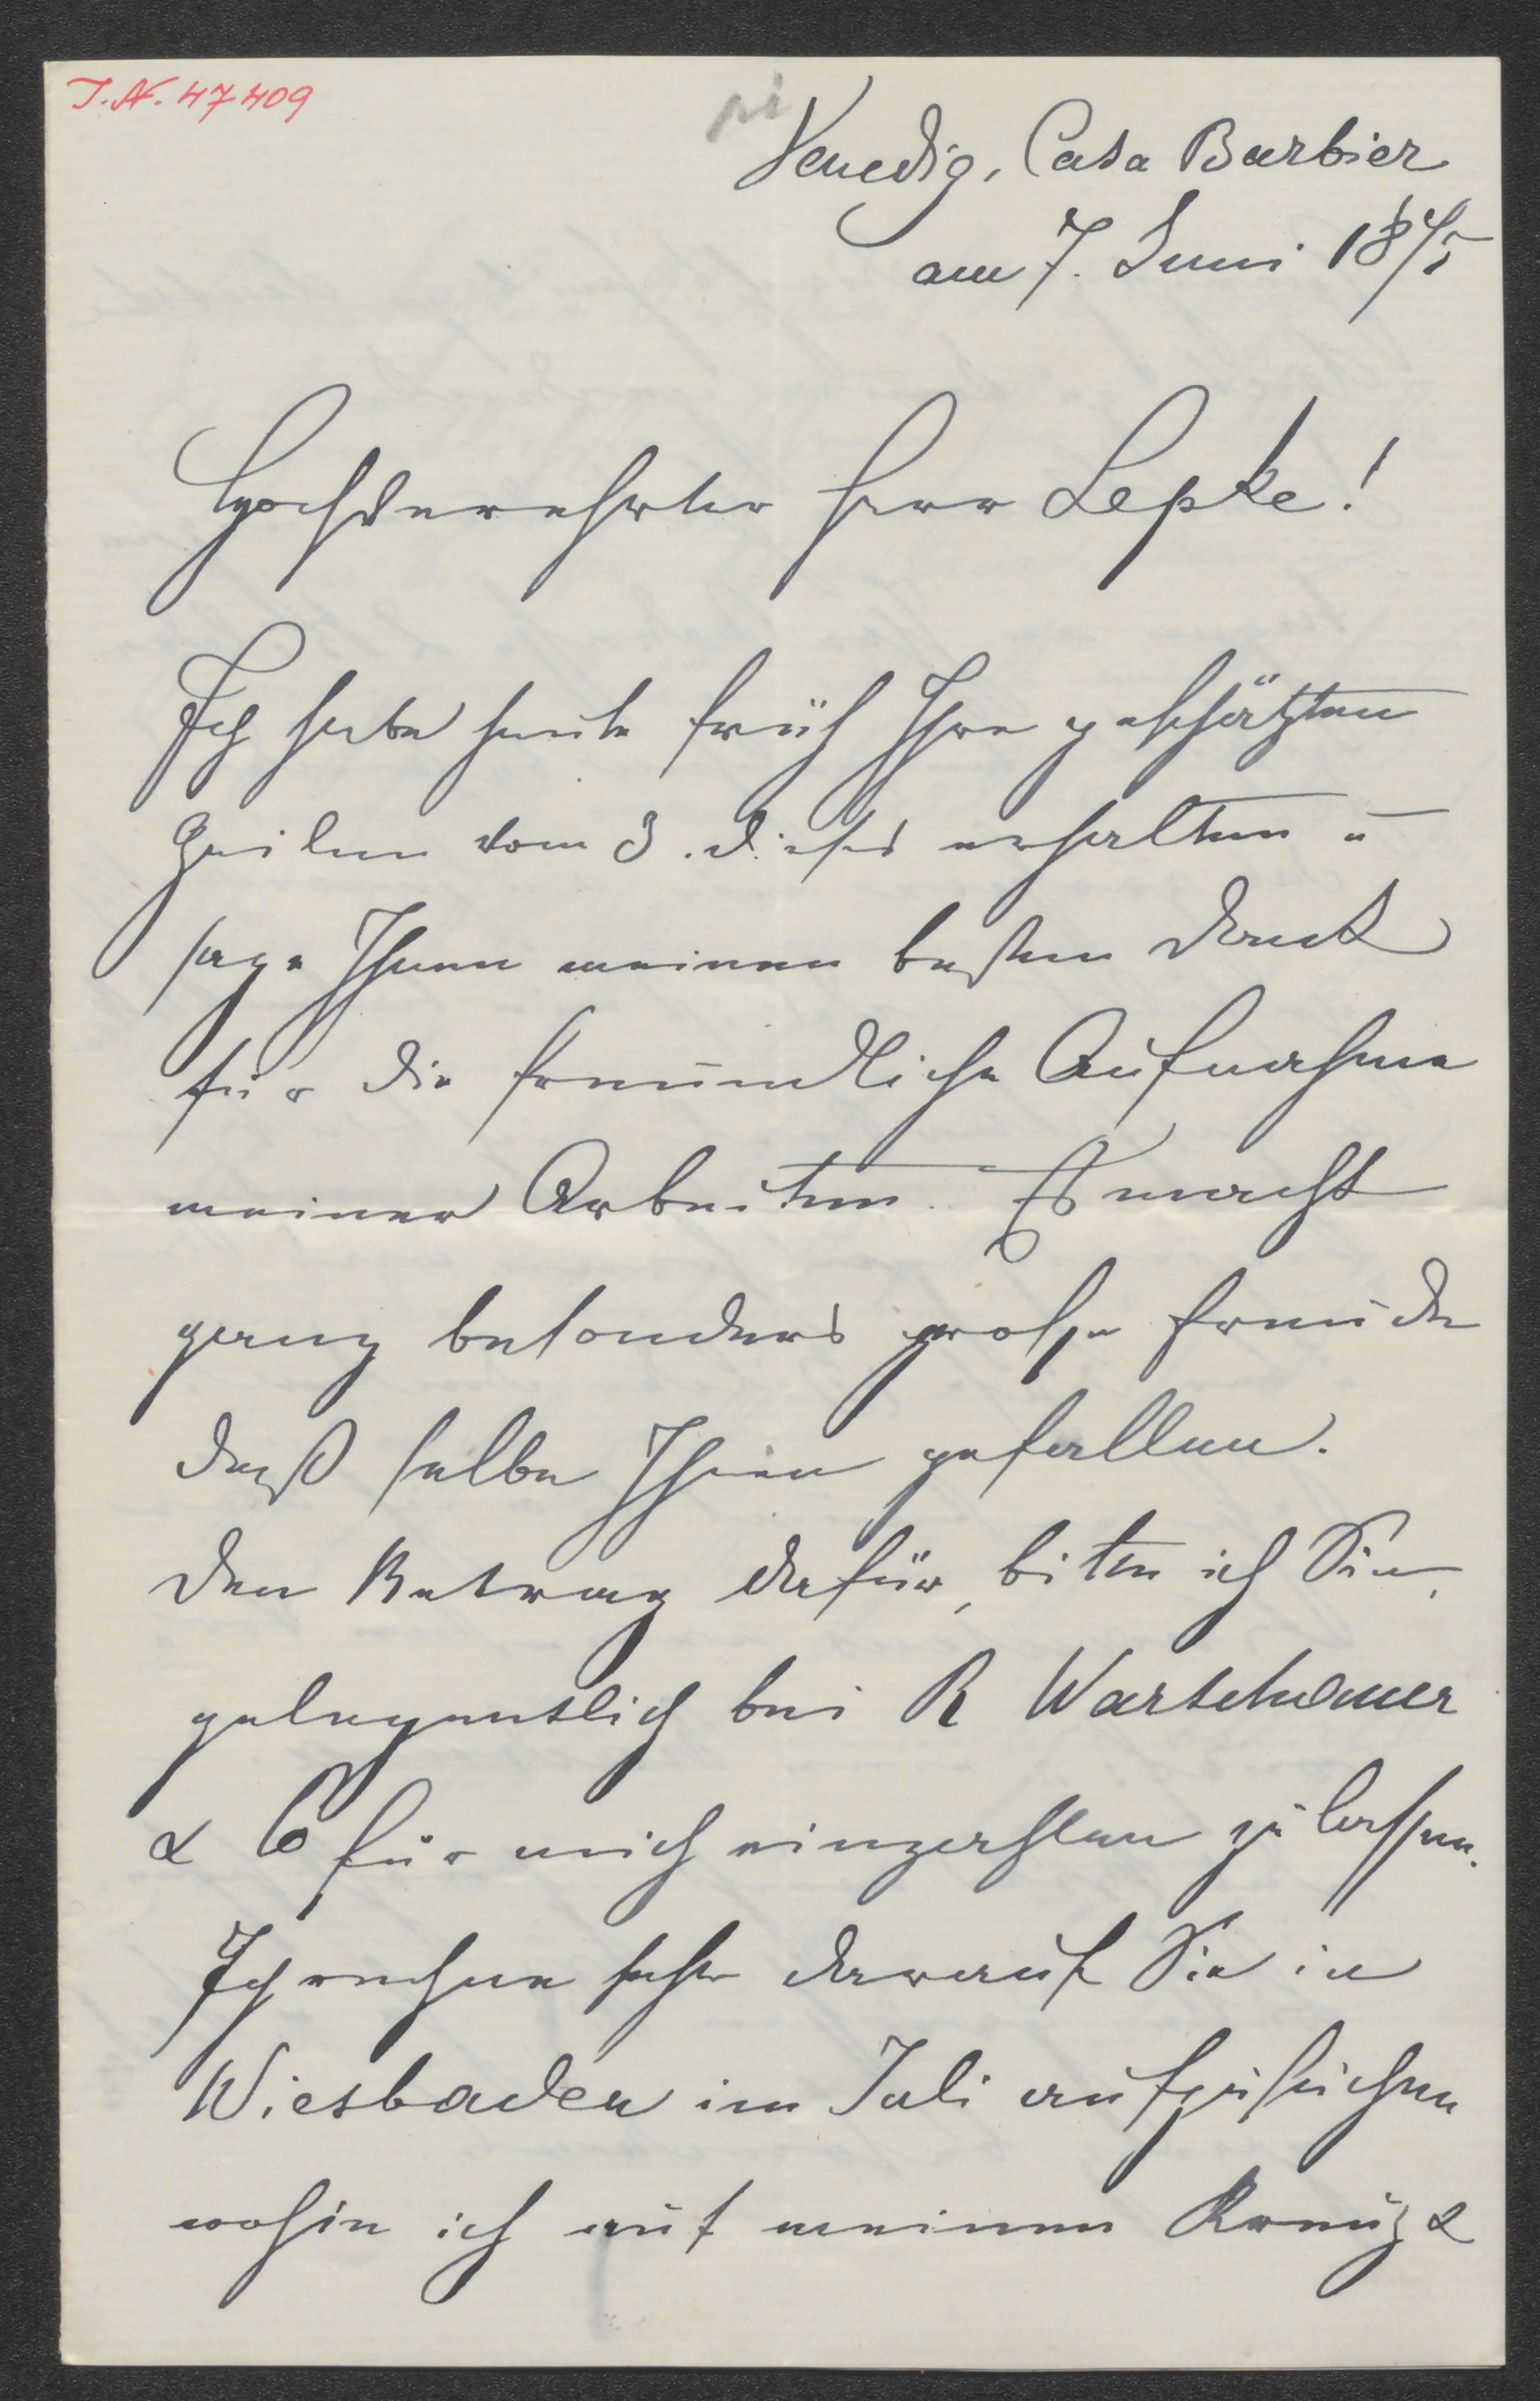 I.N. 47409
Venedig, Casa Barbier
am 7. Juni 1875
Hochverehrter Herr Lepke!
Ich habe heute früh Ihre geschätzten
Zeilen vom 3. dieses erhalten u
sage Ihnen meinen besten Dank
für die freundliche Aufnahme
meiner Arbeiten. Es macht
ganz besonders große Freude
daß selbe Ihnen gefallen.
Den Betrag dafür, bitten ich Sie,
gelegentlich bei R Warschauer
& Co für mich einzahlen zu lassen.
Ich rechne sehr darauf Sie in
Wiesbaden im Juli aufzusuchen
wohin ich auf meinen Kreuz &